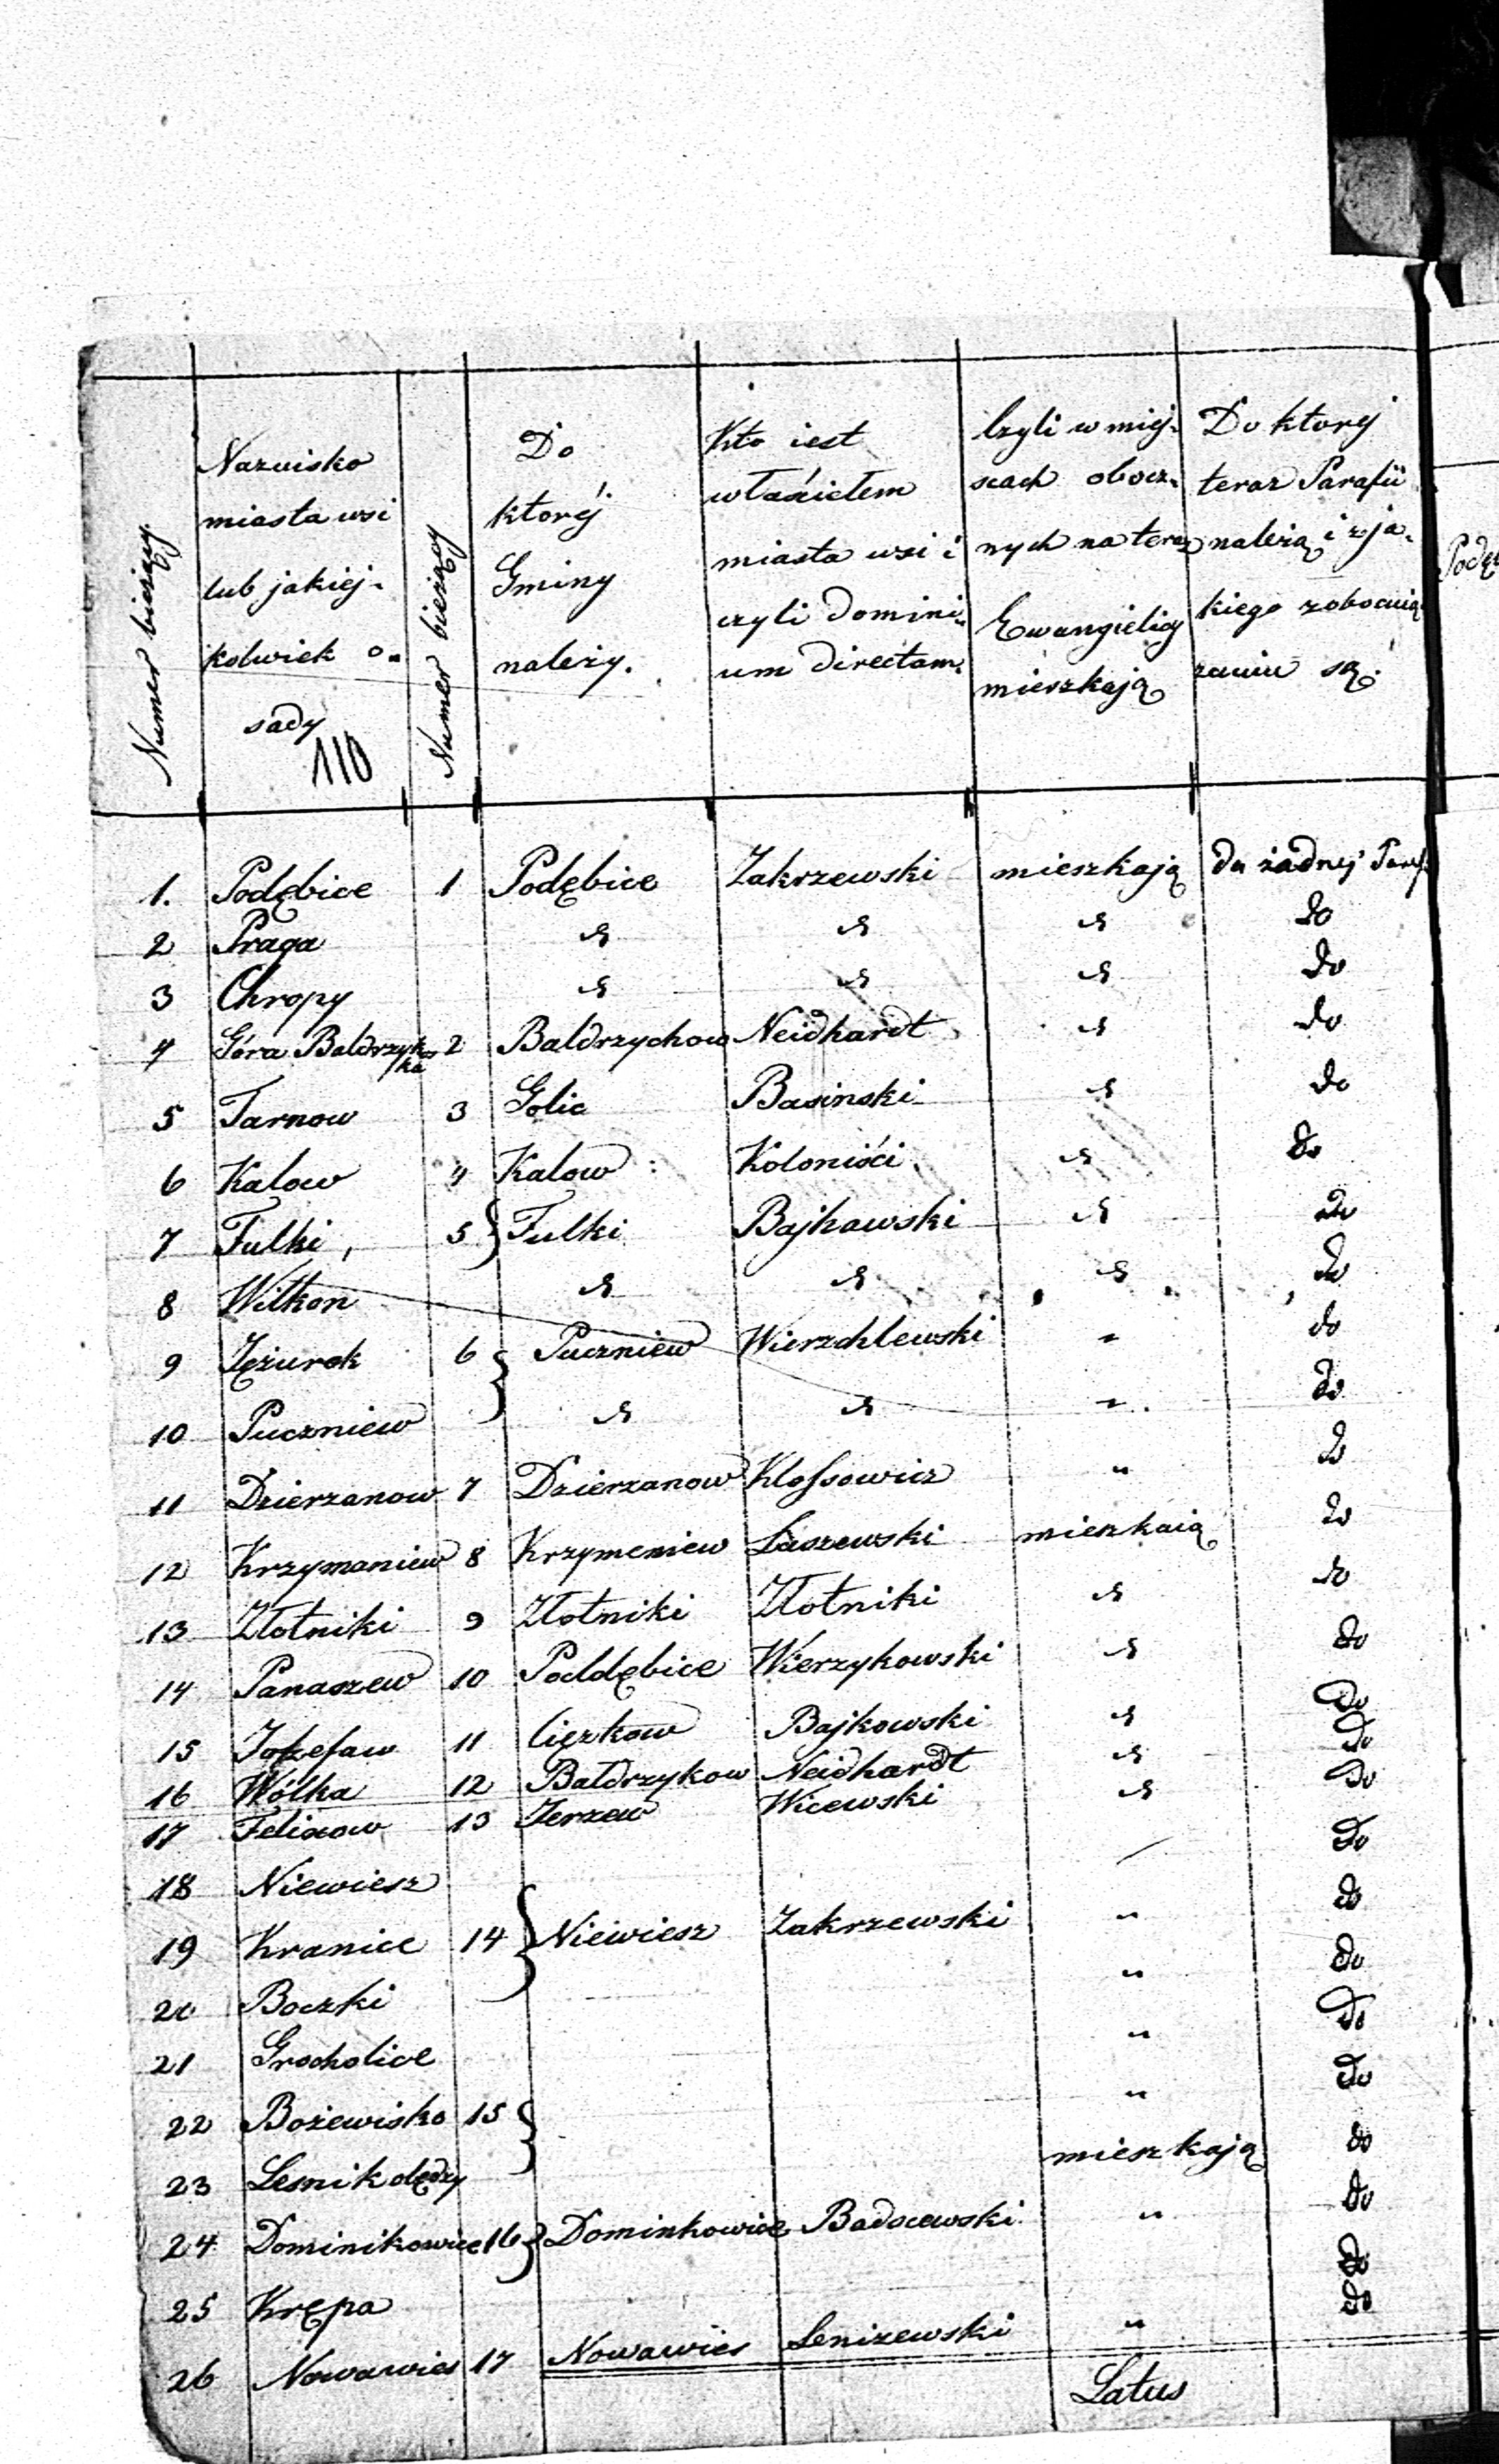 Numer bieżący.
Nazwisko
miasta wsi
lub jakiej-
kolwiek o-
sady
110
Numer bieżący
Do
ktorej
Gminy
należy.
Kto iest
właścielem
miasta wsi i
czyli domini-
um directam.
Czyli w miej-
scach obocz-
nych na teraz
Ewangielicy
mieszkają
Do ktorej
teraz Parafii
należą i z ja-
kiego zobowią
zaniu są.
1. Podębice 1 Podębice Zakrzewski mieszkają do żadnej Paraf.
2 Praga " " " do
3 Chropy " " " do
4 Góra Baldrzyk- 2 Baldrzychow Neidhardt " do
ka
5 Tarnow 3 Golic Basinski " do
6 Kalow 4 Kalow Koloniści " do
7 Fulki, 5 Fulki Bajkawski " do
8 Wilkon " " " do
9 Jężurek 6 Puczniew Wierzchlewski " do
10 Puczniew " " " do
11 Dzierzanow 7 Dzierzanow Klossowicz " do
12 Krzymaniew 8 Krzymeniew Laszewski mieszkaią do
13 Złotniki 9 Złotniki Złotniki " do
14 Panaszew 10 Poddębice Wierzykowski " do
15 Jozefaw 11 Ciężkow Bajkowski " Do
16 Wólka 12 Bałdrzykow Neidhardt " Do
17 Felixow 13 Jerzew Wicewski " Do
18 Niewiesz Do
19 Kranice 14 Niewiesz Zakrzewski " do
20 Boczki " do
21 Grocholice " Do
22 Bożewisko 15 " Do
23 Lesnik dędzy mieszkają do
24 Dominikowice 16 Dominkowice Badocewski " do
25 Krępa do
26 Nowawies 17 Nowawies Leniszewski " do
Latus
Podęb